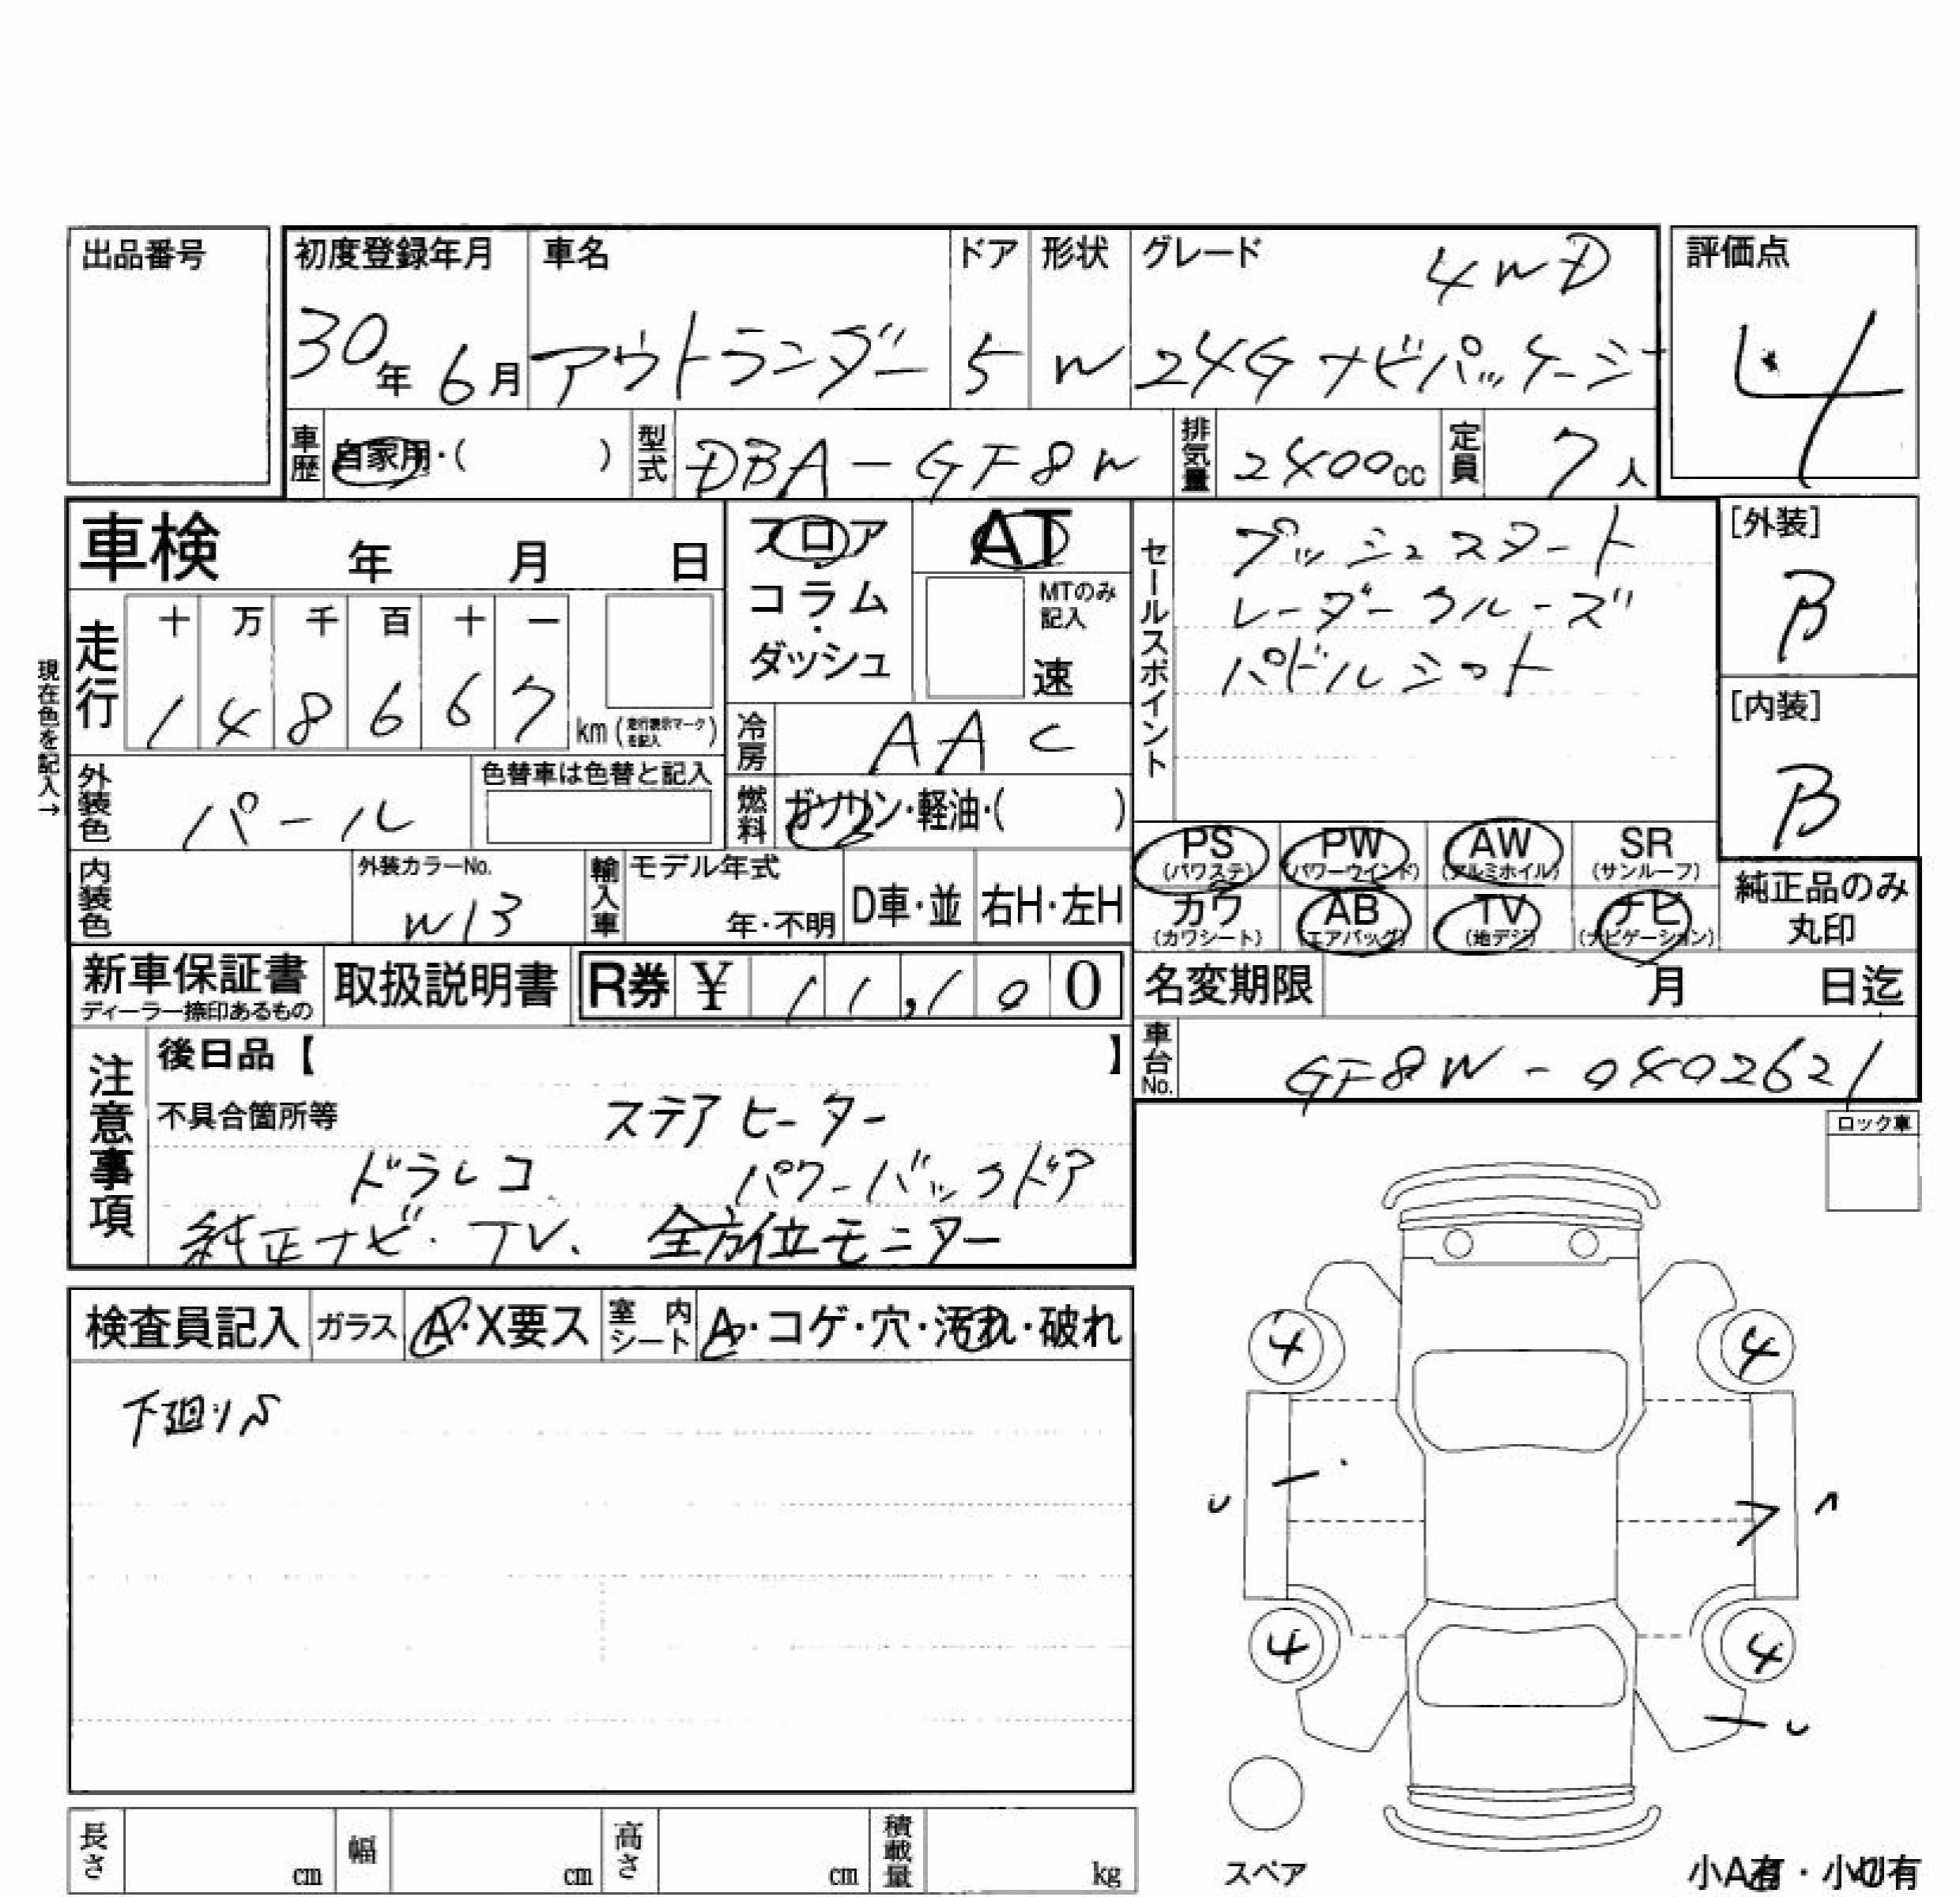 出品番号
初度登録年月 車名 ドア 形状 グレード 4WD 評価点
30年 6月 アウトランダー 5 W 24G ナビパッケージ 4
車歴 自家用・( ) 型式 DBA-GF8W 排気量 2400cc 定員 7人
車検 年 月 日
フロア AT
コラム・ダッシュ MTのみ記入 速
セールスポイント
プッシュスタート
レーダークルーズ
パドルシフト
[外装] B
[内装] B
現在色を記入→
走行 十 万 千 百 十 一
1 4 8 6 6 7 km (走行表示マークを記入)
冷房 AAC
外装色 パール 色替車は色替と記入
燃料 ガソリン・軽油・( )
PS (パワステ) PW (パワーウインド) AW (アルミホイル) SR (サンルーフ)
カワ (カワシート) AB (エアバッグ) TV (地デジ) ナビ (ナビゲーション)
純正品のみ丸印
内装色 外装カラーNo. W13 輸入車 モデル年式 年・不明 D車・並 右H・左H
新車保証書 ディーラー捺印あるもの 取扱説明書 R券 ¥ 11,100
名変期限 月 日迄
車台No. GF8W-0402621
注意事項
後日品【 】
不具合箇所等 ステアヒーター
ドラレコ パワーバックドア
純正ナビ・TV、全方位モニター
ロック車
検査員記入 ガラス A・X要ス 室内シート A・コゲ・穴・汚れ・破れ
下廻りS
4 4
4 4
スペア
小A有・小U有
長さ cm 幅 cm 高さ cm 積載量 kg